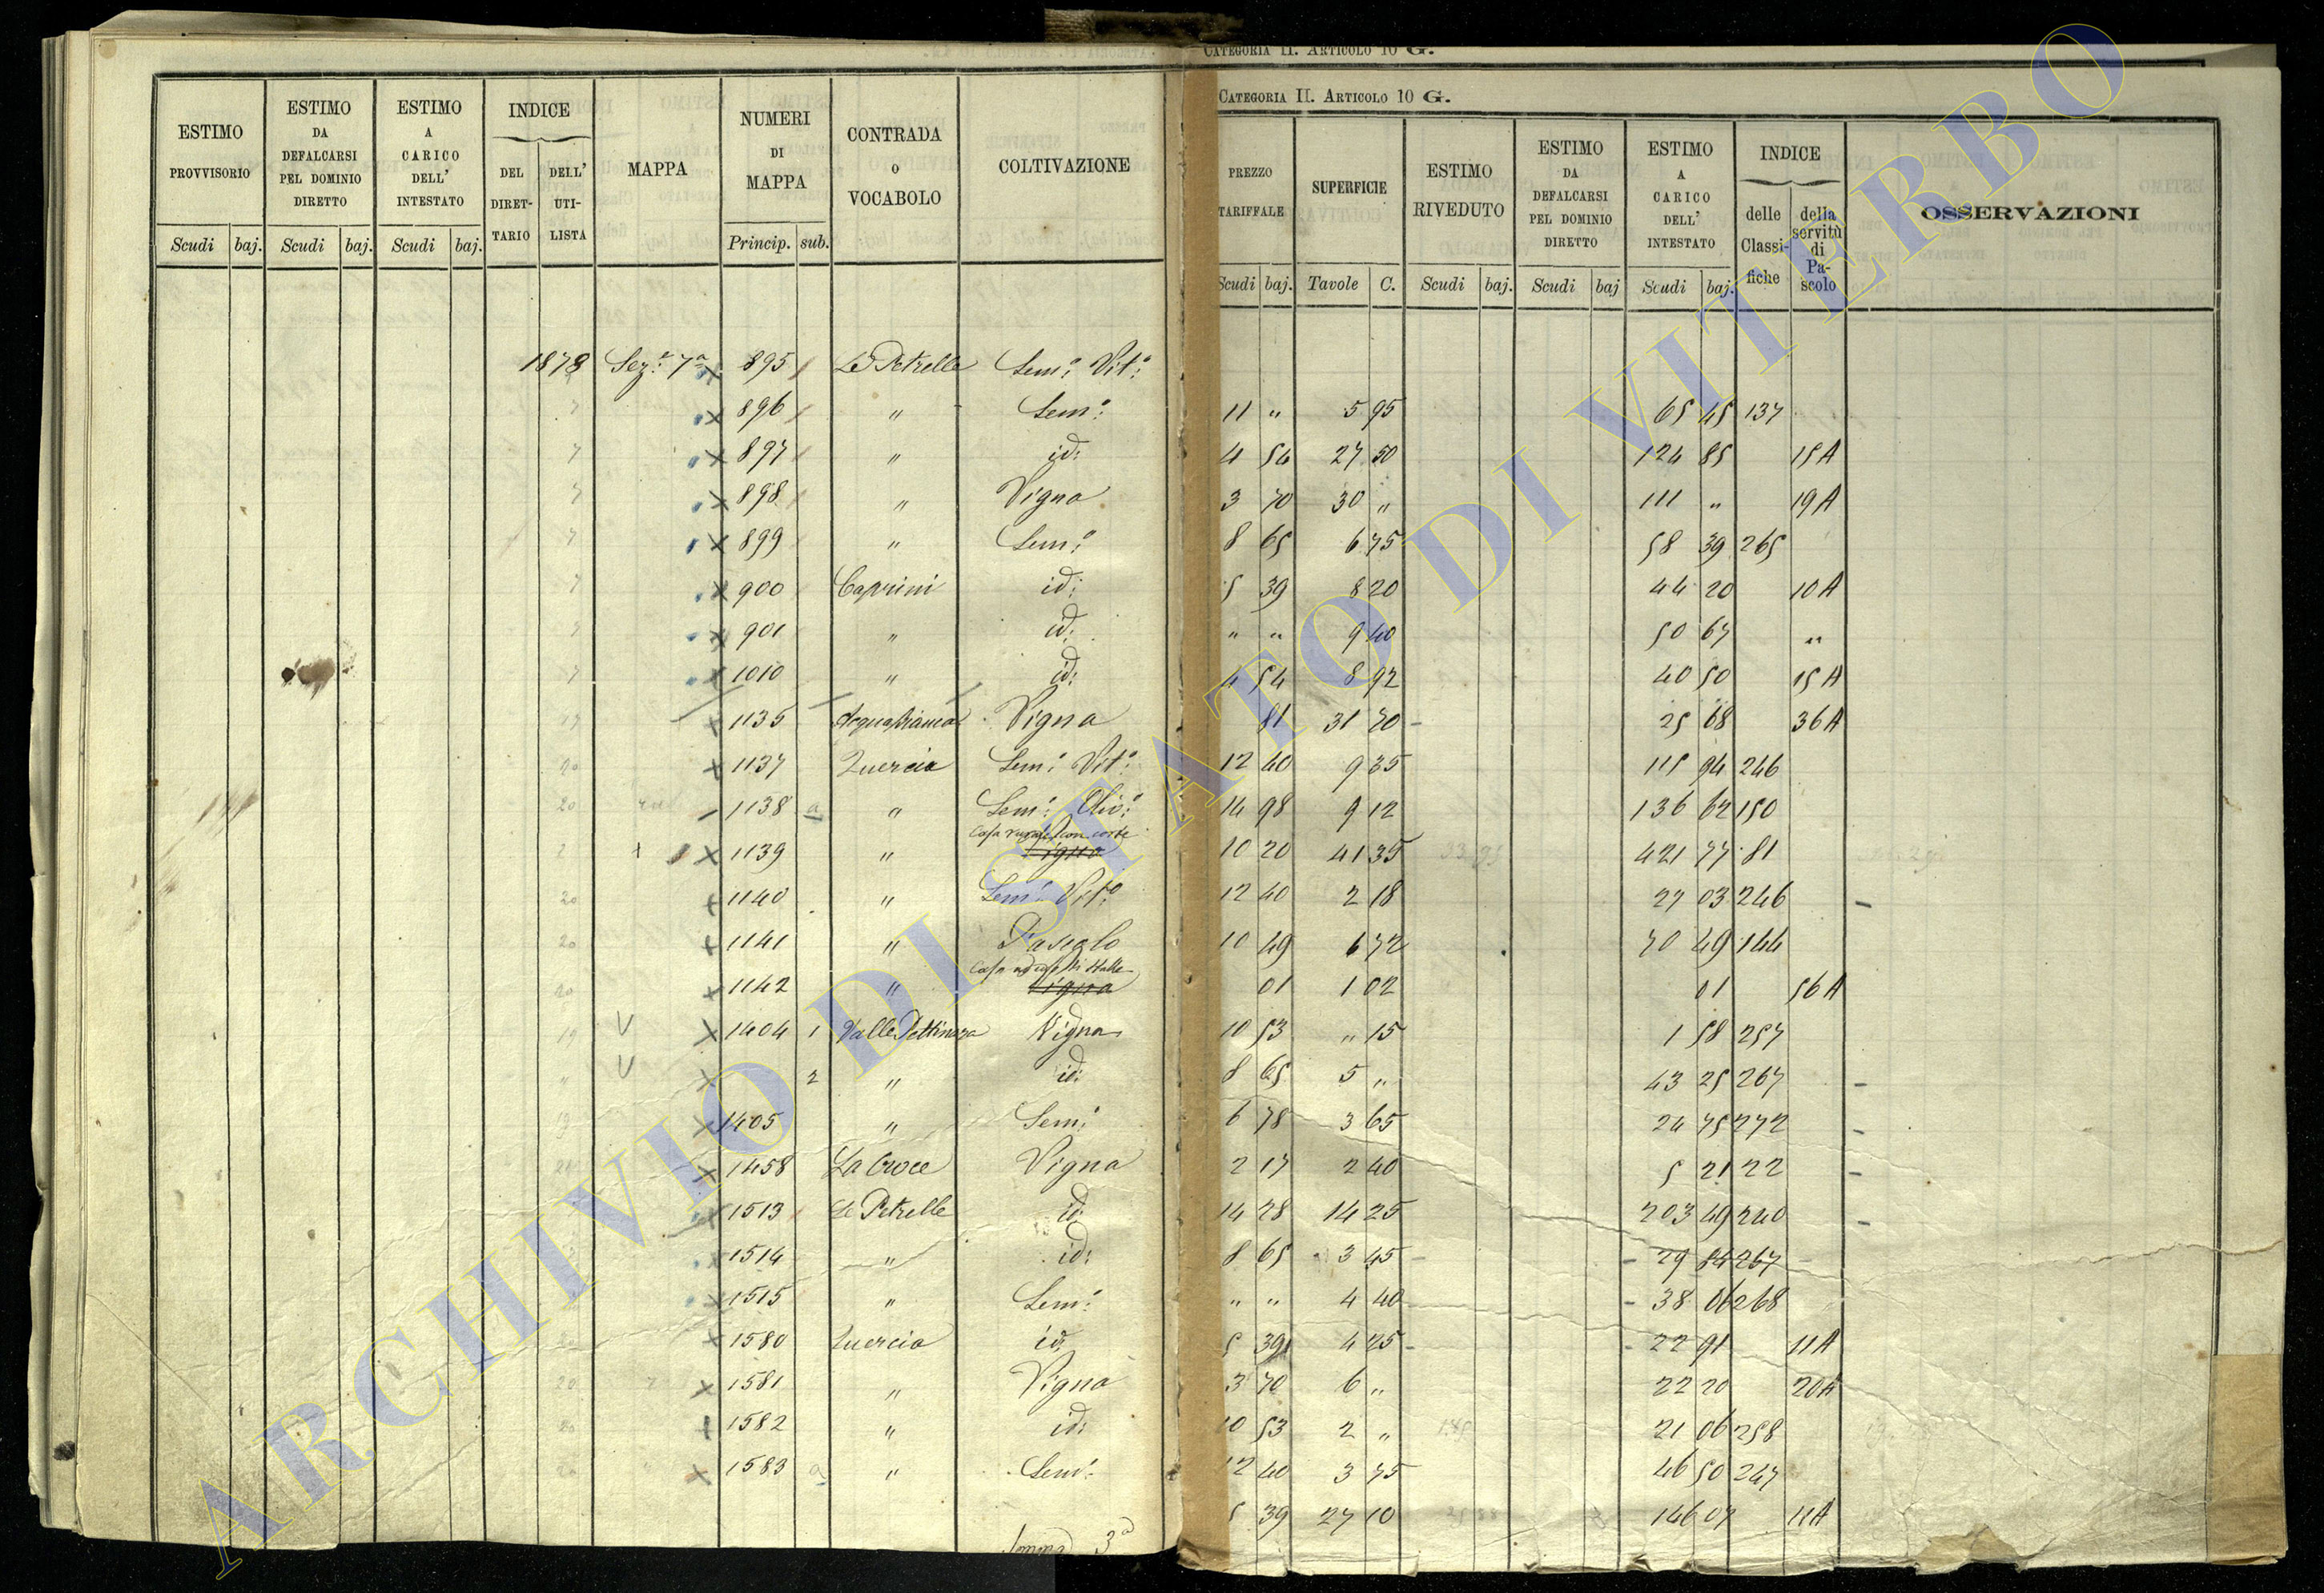 CATEGORIA II. ARTICOLO 10 G.
CATEGORIA II. ARTICOLO 10 G.
ESTIMO PROVVISORIO
ESTIMO DA DEFALCARSI PEL DOMINIO DIRETTO
ESTIMO A CARICO DELL' INTESTATO
INDICE
DEL DIRET-TARIO
DELL' UTI-LISTA
MAPPA
NUMERI DI MAPPA
CONTRADA o VOCABOLO
COLTIVAZIONE
Scudi baj. Scudi baj. Scudi baj. Princip. sub.
1878 Sez.e 7a 895 Le Petrelle Sem:o Vit:o
896 " Sem:o
897 " id:
898 " Vigna
899 " Sem:o
900 Caprini id:
901 " id:
1010 " id:
1135 Acquabianca Vigna
1137 Quercia Sem:o Vit:o
1138 a " Sem:o Oliv:o
1139 " Casa rurale con corte Vigna
1140 " Sem:o Vit:o
1141 " Pascolo
1142 " Vigna
1404 1 Valle Pettinara Vigna
2 " id:
1405 " Sem:o
1458 La Croce Vigna
1513 Le Petrelle id:
1514 " id:
1515 " Sem:o
1580 Quercia id:
1581 " Vigna
1582 " id:
1583 a " Sem:o
Somma 3a
PREZZO TARIFFALE
SUPERFICIE
ESTIMO RIVEDUTO
ESTIMO DA DEFALCARSI PEL DOMINIO DIRETTO
ESTIMO A CARICO DELL' INTESTATO
INDICE
delle Classi-fiche
della servitù di Pa-scolo
OSSERVAZIONI
Scudi baj. Tavole C. Scudi baj. Scudi baj Scudi baj.
11 " 5 95 65 45 137
4 54 27 50 124 85 15 A
3 70 30 " 111 " 19 A
8 65 6 75 58 39 265
5 39 8 20 44 20 10 A
" " 9 40 50 67 "
4 54 8 92 40 50 15 A
81 31 70 25 68 36 A
12 40 9 35 115 94 246
14 98 9 12 136 62 150
10 20 41 35 421 77 81
12 40 2 18 27 03 246
10 49 6 72 70 49 144
01 1 02 01 56 A
10 53 " 15 1 58 257
8 65 5 " 43 25 267
6 78 3 65 24 75 272
2 17 2 40 5 21 22
14 28 14 25 203 49 240
8 65 3 45 29 84 267
" " 4 40 38 06 268
5 39 4 25 22 91 11 A
3 70 6 " 22 20 20 A
10 53 2 " 21 06 258
12 40 3 75 46 50 247
5 39 27 10 146 07 11 A
ARCHIVIO DI STATO DI VITERBO